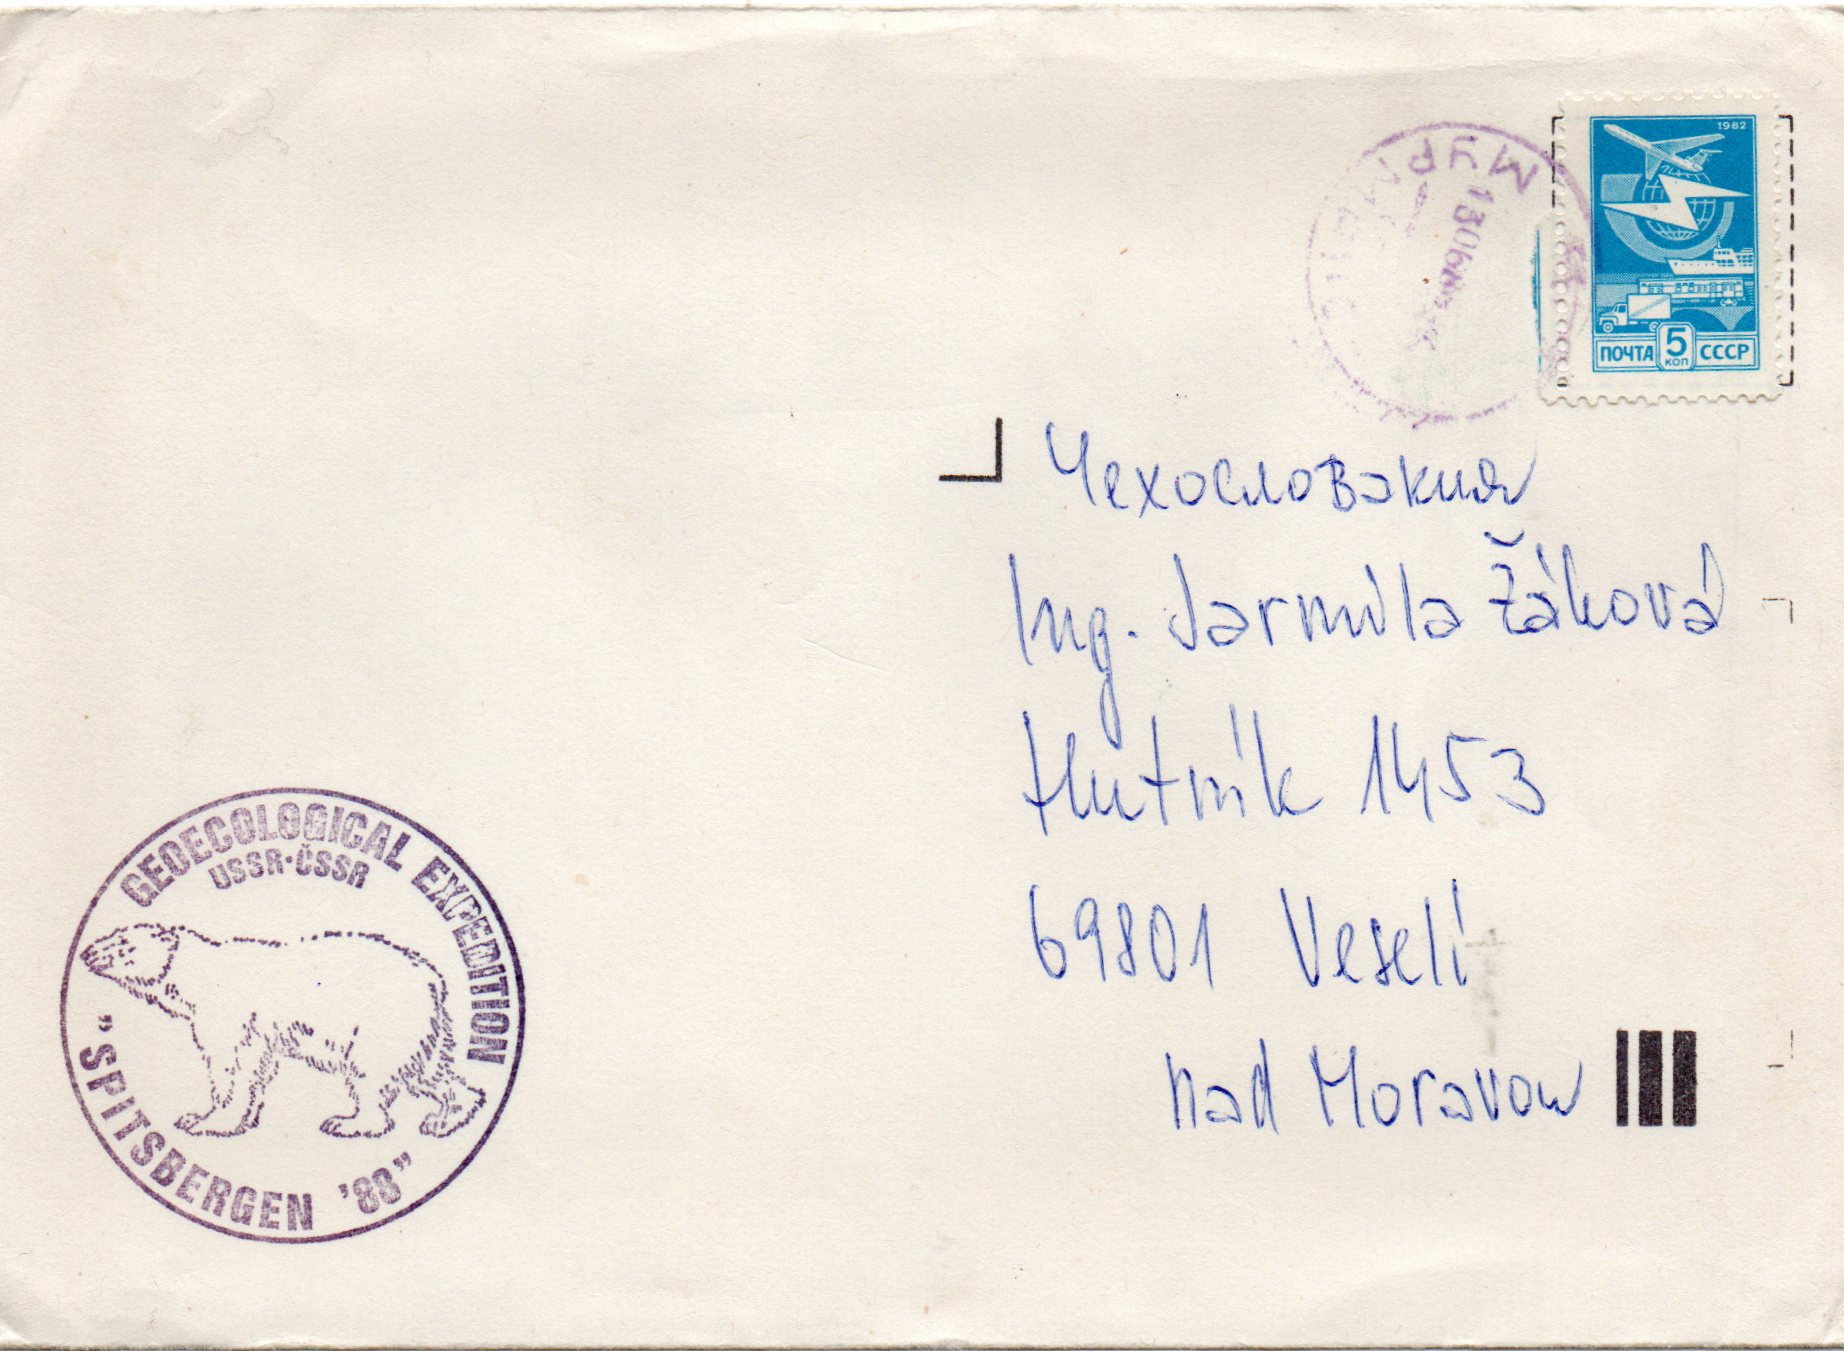 1982
ПОЧТА 5 КОП СССР
Чехословакия
Ing. Jarmila Žáková
Hutník 1453
69801 Veselí
nad Moravou
GEOECOLOGICAL EXPEDITION
USSR-ČSSR
"SPITSBERGEN '88"